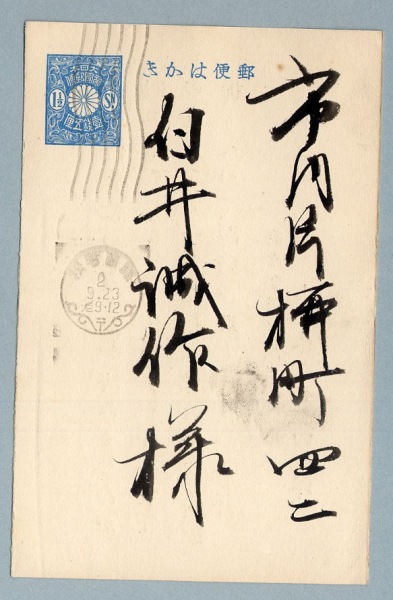 郵便はかき
大日本
帝國郵便
1½ Sn
壹錢五厘
市内片桝町四二
臼井誠作様
2
9.23
后9-12
〒